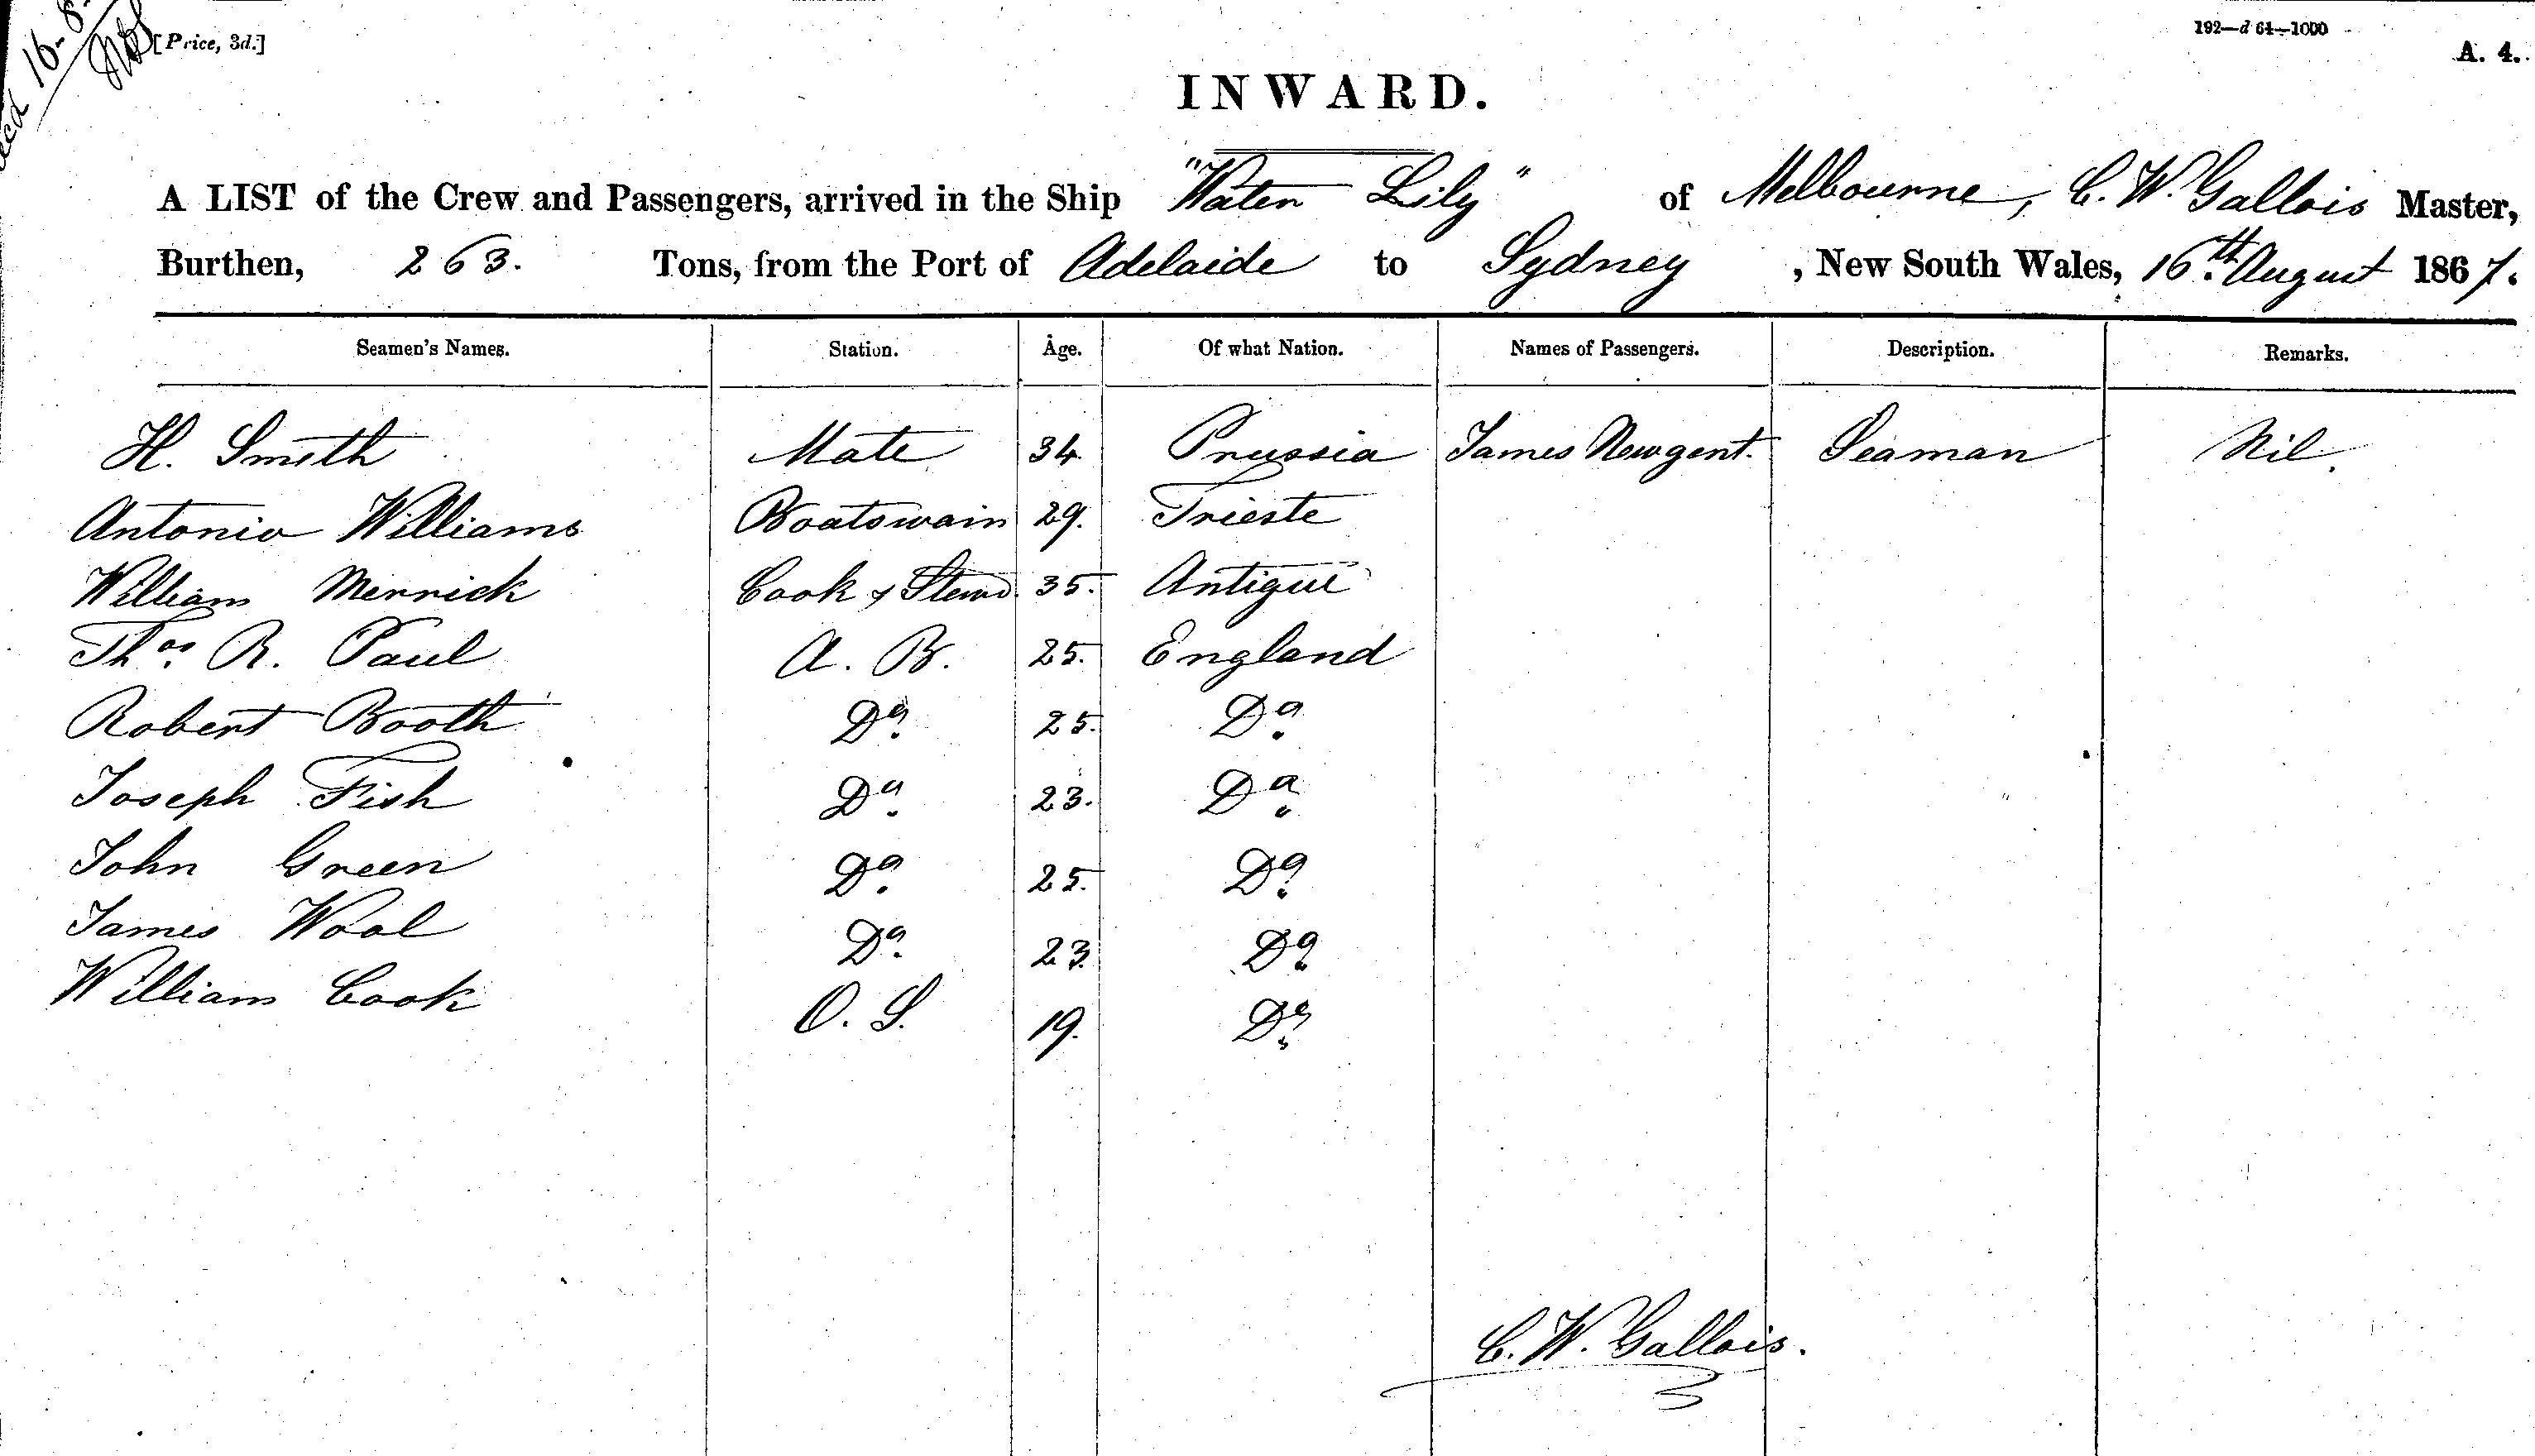 [Price, 3d.]
192—d 64—1000
A. 4.
16-8-
INWARD.
A LIST of the Crew and Passengers, arrived in the Ship "Water Lily" of Melbourne, C. W. Gallois Master,
Burthen, 263. Tons, from the Port of Adelaide to Sydney, New South Wales, 16th August 1867.
Seamen's Names. Station. Age. Of what Nation. Names of Passengers. Description. Remarks.
H. Smith Mate 34. Prussia James Newgent. Seaman Nil.
Antonio Williams Boatswain 29. Trieste
William Merrick Cook & Stewd. 35. Antigue
Thos. R. Paul A. B. 25. England
Robert Booth Do. 25. Do.
Joseph Fish Do. 23. Do.
John Green Do. 25. Do.
James Wool Do. 23. Do.
William Cook O. S. 19. Do.
C. W. Gallois.